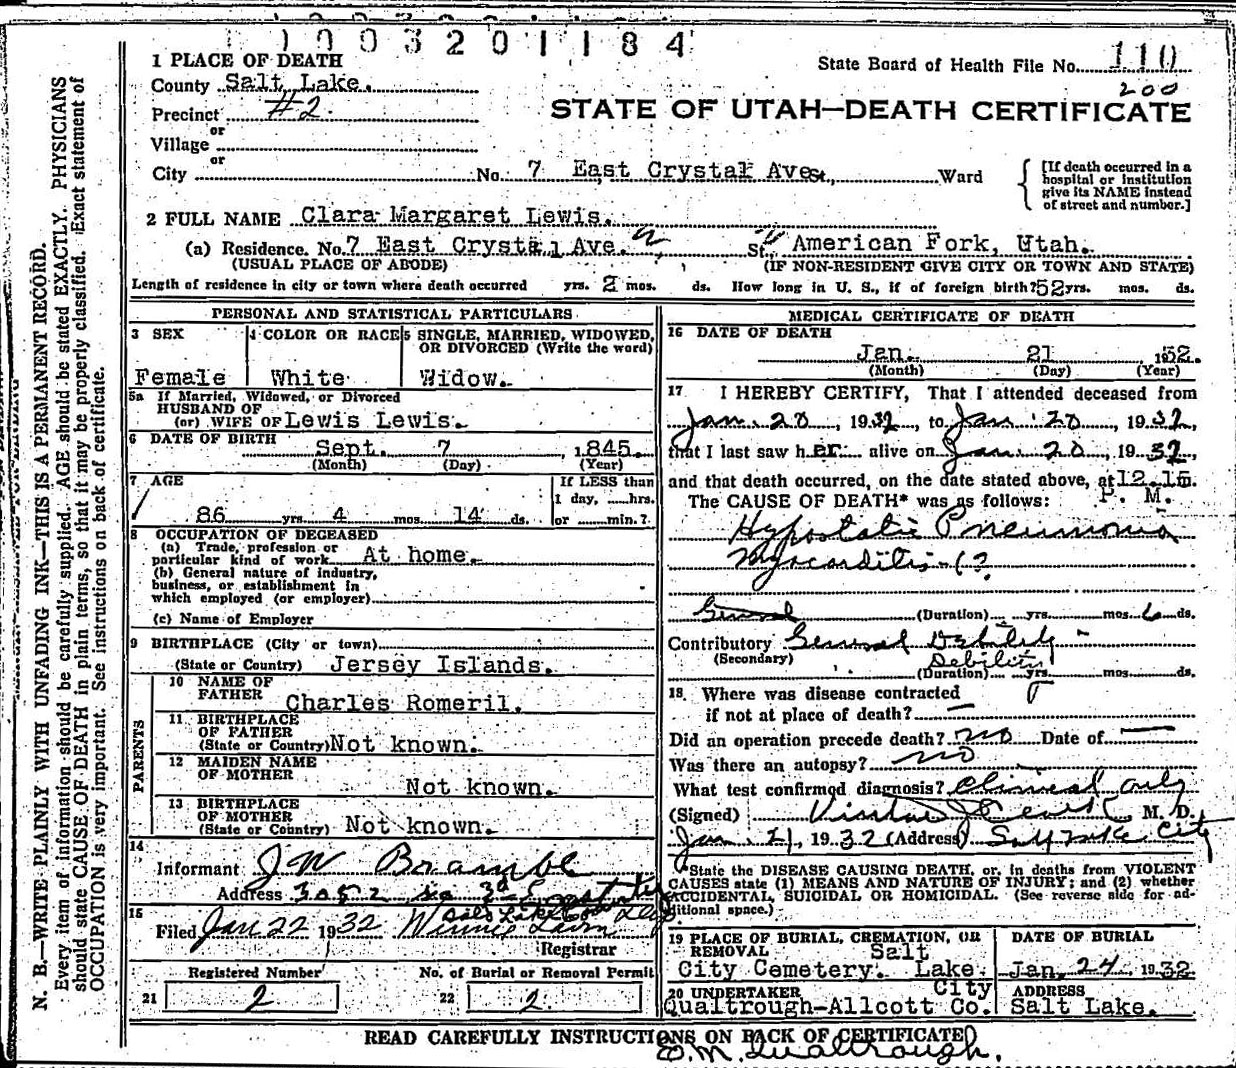 1003201184
1 PLACE OF DEATH
State Board of Health File No. 110
County Salt Lake.
200
Precinct #2.
STATE OF UTAH—DEATH CERTIFICATE
or
Village
or
City No. 7 East Crystal Ave St., Ward
[If death occurred in a hospital or institution give its NAME instead of street and number.]
2 FULL NAME Clara Margaret Lewis.
(a) Residence. No. 7 East Crystal Ave. St. American Fork, Utah.
(USUAL PLACE OF ABODE) (IF NON-RESIDENT GIVE CITY OR TOWN AND STATE)
Length of residence in city or town where death occurred yrs. 2 mos. ds. How long in U. S., if of foreign birth? 52 yrs. mos. ds.
PERSONAL AND STATISTICAL PARTICULARS
3 SEX
Female
4 COLOR OR RACE
White
5 SINGLE, MARRIED, WIDOWED, OR DIVORCED (Write the word)
Widow.
5a If Married, Widowed, or Divorced
HUSBAND OF
(or) WIFE OF Lewis Lewis.
6 DATE OF BIRTH
Sept. 7, 1845.
(Month) (Day) (Year)
7 AGE
86 yrs. 4 mos. 14 ds.
If LESS than
1 day, hrs.
or min.?
8 OCCUPATION OF DECEASED
(a) Trade, profession or
particular kind of work At home.
(b) General nature of industry,
business, or establishment in
which employed (or employer)
(c) Name of Employer
9 BIRTHPLACE (City or town)
(State or Country) Jersey Islands.
PARENTS
10 NAME OF
FATHER Charles Romeril.
11 BIRTHPLACE
OF FATHER
(State or Country) Not known.
12 MAIDEN NAME
OF MOTHER Not known.
13 BIRTHPLACE
OF MOTHER
(State or Country) Not known.
14
Informant J W Bramble
Address 3052 So 3d East
15
Filed Jan 22 1932
Registrar
Registered Number
21 2
No. of Burial or Removal Permit
22 2
MEDICAL CERTIFICATE OF DEATH
16 DATE OF DEATH
Jan. 21, 1932.
(Month) (Day) (Year)
17 I HEREBY CERTIFY, That I attended deceased from
Jan. 20, 1932, to Jan. 20, 1932,
that I last saw her alive on Jan. 20, 1932,
and that death occurred, on the date stated above, at 12.15 m.
P. M.
The CAUSE OF DEATH* was as follows:
Hypostatic Pneumonia
Myocarditis (?
General
(Duration) yrs. mos. 6 ds.
Contributory General Debility
(Secondary)
Debility
(Duration) yrs. mos. ds.
18. Where was disease contracted
if not at place of death? —
Did an operation precede death? no Date of —
Was there an autopsy? no
What test confirmed diagnosis? Clinical only
(Signed) M. D.
Jan. 21, 1932 (Address) Salt Lake City
*State the DISEASE CAUSING DEATH, or, in deaths from VIOLENT
CAUSES state (1) MEANS AND NATURE OF INJURY; and (2) whether
ACCIDENTAL, SUICIDAL OR HOMICIDAL. (See reverse side for additional space.)
19 PLACE OF BURIAL, CREMATION, OR
REMOVAL
City Cemetery. Salt Lake City
DATE OF BURIAL
Jan. 24, 1932
20 UNDERTAKER
Qualtrough-Allcott Co.
ADDRESS
Salt Lake.
READ CAREFULLY INSTRUCTIONS ON BACK OF CERTIFICATE
D. M. Qualtrough.
N. B.—WRITE PLAINLY WITH UNFADING INK—THIS IS A PERMANENT RECORD.
Every item of information should be carefully supplied. AGE should be stated EXACTLY. PHYSICIANS
should state CAUSE OF DEATH in plain terms, so that it may be properly classified. Exact statement of
OCCUPATION is very important. See instructions on back of certificate.